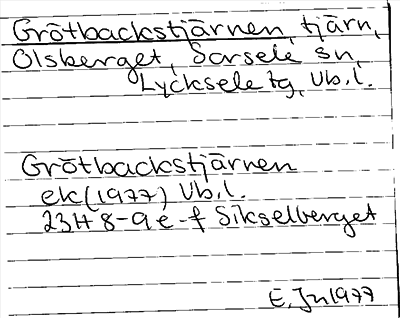 Grötbackstjärnen, tjärn,
Olsberget, Sorsele sn,
Lycksele tg, Vb.l.
Grötbackstjärnen
ek (1977) Vb.l.
23H 8-9 e-f Sikselberget
E. Jn 1977